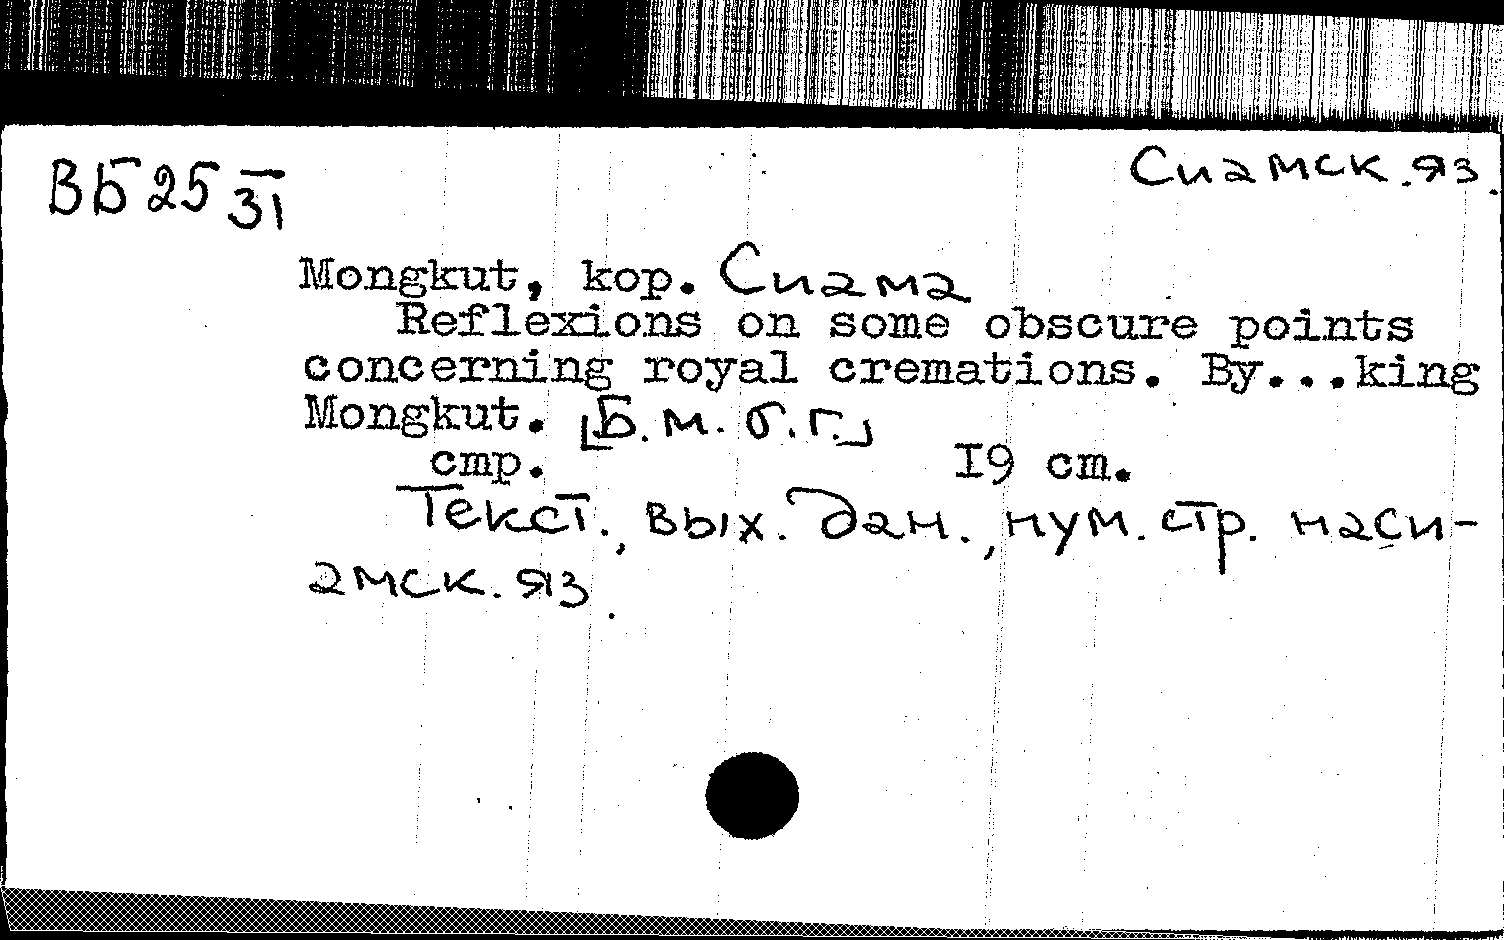 ВБ25 31
Сиамск.яз.
Mongkut, кор. Сиама
Reflexions on some obscure points
concerning royal cremations. By...king
Mongkut. [Б.м. б.г.]
стр. 19 cm.
Текст., вых. дан., нум. стр. наси-
амск. яз.